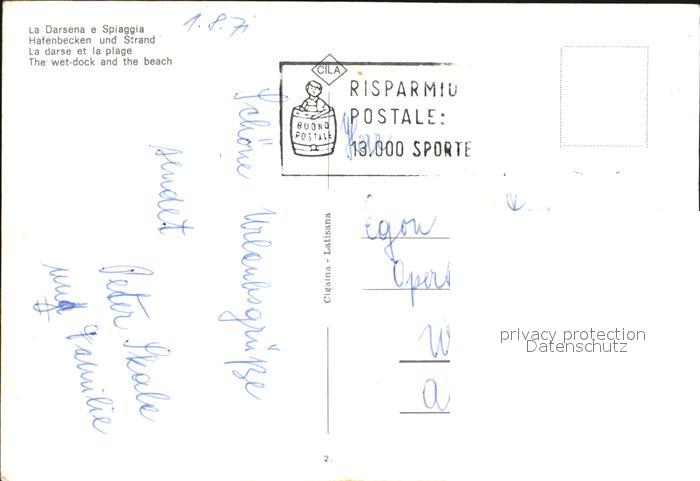 La Darsena e Spiaggia
Hafenbecken und Strand
La darse et la plage
The wet-dock and the beach
1.8.71
CILA
BUONO
POSTALE
RISPARMIO
POSTALE:
13.000 SPORTE
Schöne Urlaubsgrüße
sendet
Peter Skala
und Familie
Cigaina - Latisana
Herr
Egon
Oper
W
A
privacy protection
Datenschutz
2.